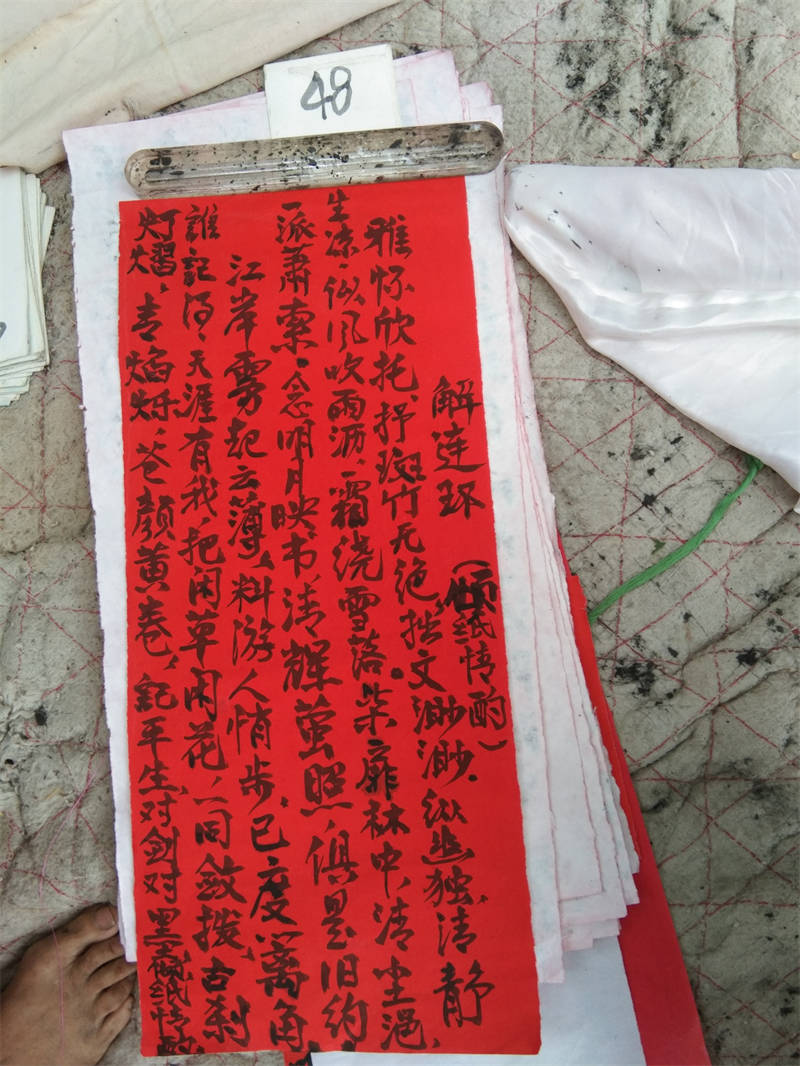 48
解连环 （倾纸情酌）
雅怀欣托，抒斑竹无绝，拙文渺渺。纵幽独，清静
生凉，似风吹雨沥，霜浇雪落。柴扉林中，清尘浥，
一派萧索。念明月映书，清辉萤照，俱是旧约
江岸雾起云薄，料游人悄步，已度篱角，
誰記得，天涯有我，把闲草闲花，一同敛拨，古刹
灯熠，青焰烁，苍颜黄卷，記平生，对剑对墨，倾纸情酌